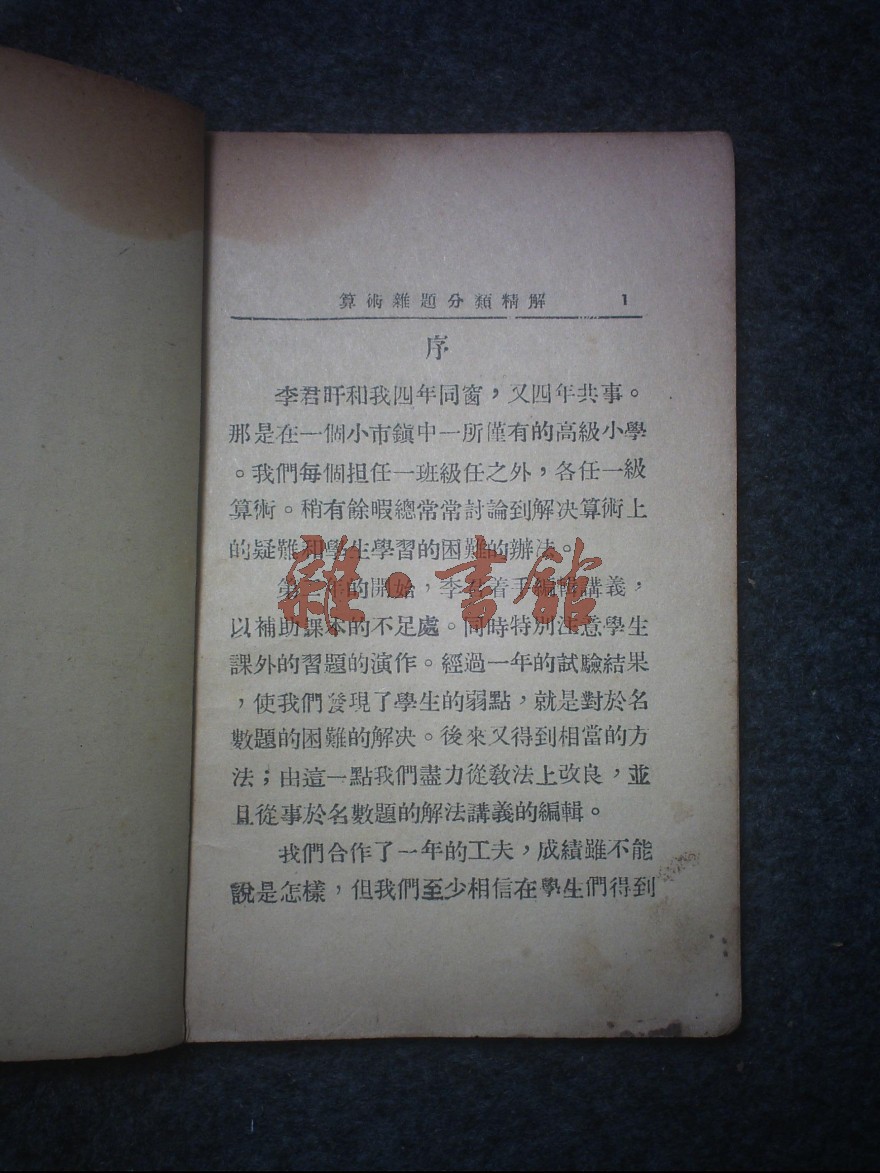 算術雜題分類精解 1
序
李君旰和我四年同窗，又四年共事。
那是在一個小市鎮中一所僅有的高級小學
。我們每個担任一班級任之外，各任一級
算術。稍有餘暇總常常討論到解決算術上
的疑難和學生學習的困難的辦法。
第三年的開始，李君着手編輯講義，
以補助課本的不足處。同時特別注意學生
課外的習題的演作。經過一年的試驗結果
，使我們發現了學生的弱點，就是對於名
數題的困難的解决。後來又得到相當的方
法；由這一點我們盡力從敎法上改良，並
且從事於名數題的解法講義的編輯。
我們合作了一年的工夫，成績雖不能
說是怎樣，但我們至少相信在學生們得到
雜·書館